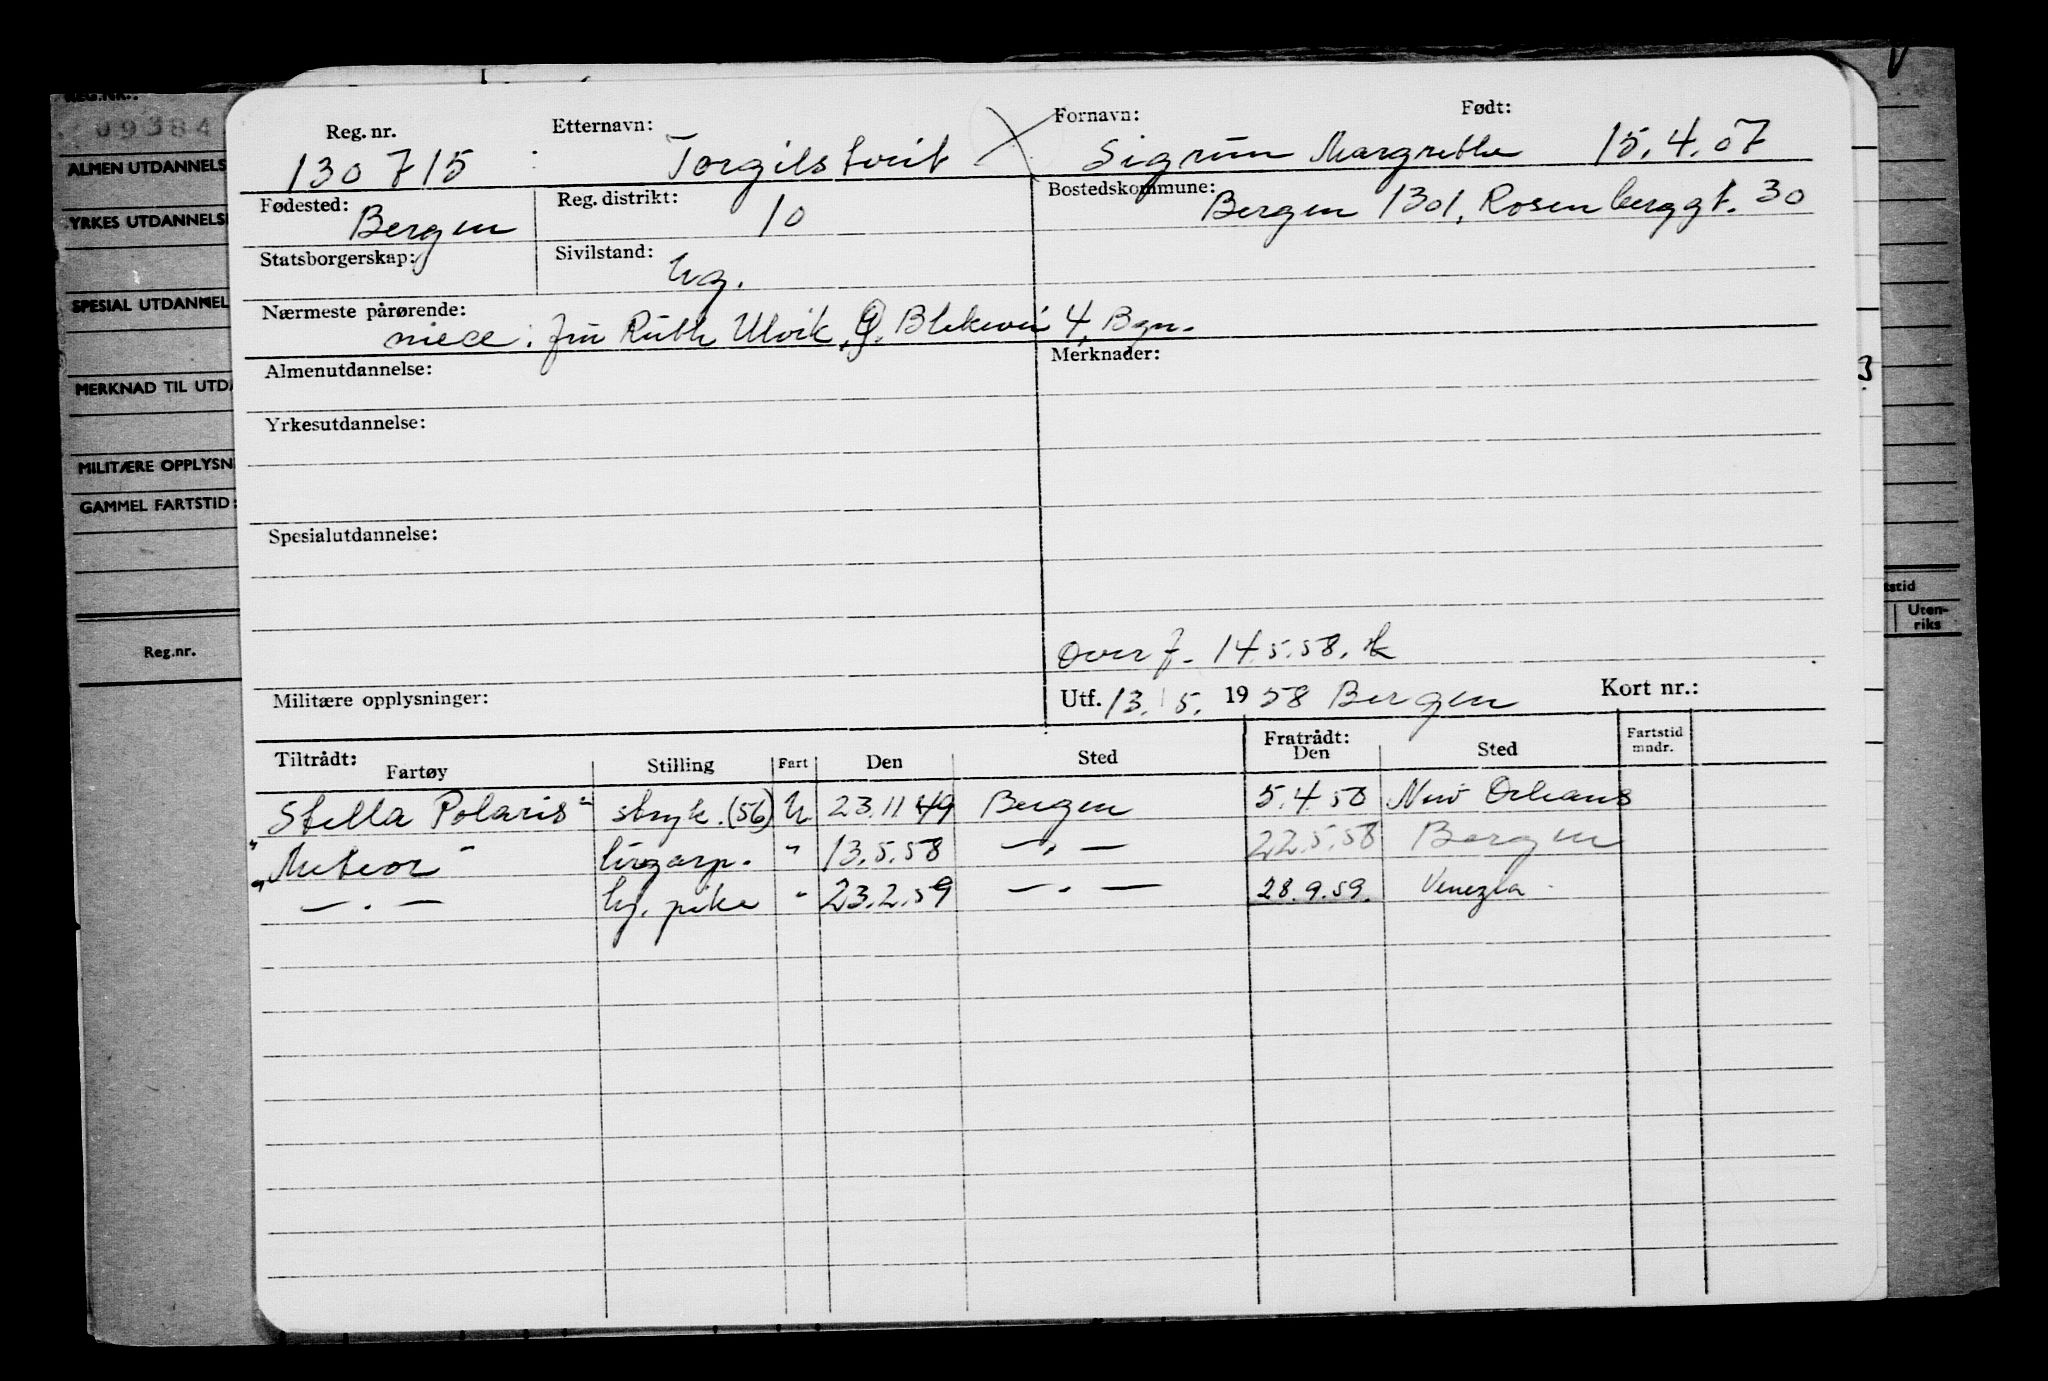 REG.NR.:
09384
ALMEN UTDANNELS
YRKES UTDANNELSE
SPESIAL UTDANNEL
MERKNAD TIL UTDA
MILITÆRE OPPLYSN
GAMMEL FARTSTID:
Reg.nr.
Reg. nr. Etternavn: Fornavn: Født:
130715 Torgilstveit Sigrun Margrethe 15.4.07
Fødested: Reg. distrikt: Bostedskommune:
Bergen 10 Bergen 1301, Rosenberggt. 30
Statsborgerskap: Sivilstand:
Ug.
Nærmeste pårørende:
niece: fru Ruth Ulvik, Blekevei 4, Bgn.
Almenutdannelse: Merknader:
Yrkesutdannelse:
Spesialutdannelse:
Overf. 14.5.58.
Militære opplysninger: Utf. 13.5. 1958 Bergen Kort nr.:
Tiltrådt: Fartøy Stilling Fart Den Sted Fratrådt: Den Sted Fartstid mndr.
Stella Polaris" stryk. (56) U 23.11.49 Bergen 5.4.50 New Orleans
"Meteor" " 13.5.58 — " — 22.5.58 Bergen
" — . — pike " 23.2.59 — . — 28.9.59. Venezia
3
tstid
Uten-
riks